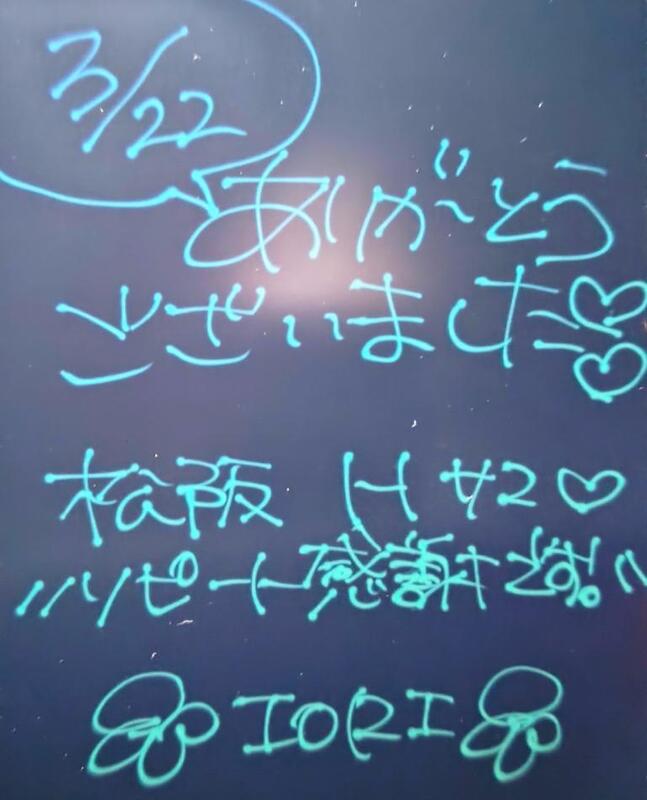 3/22
ありがとう
ございました♡♡
松阪 Hサン♡
リピート感謝です!!
IORI